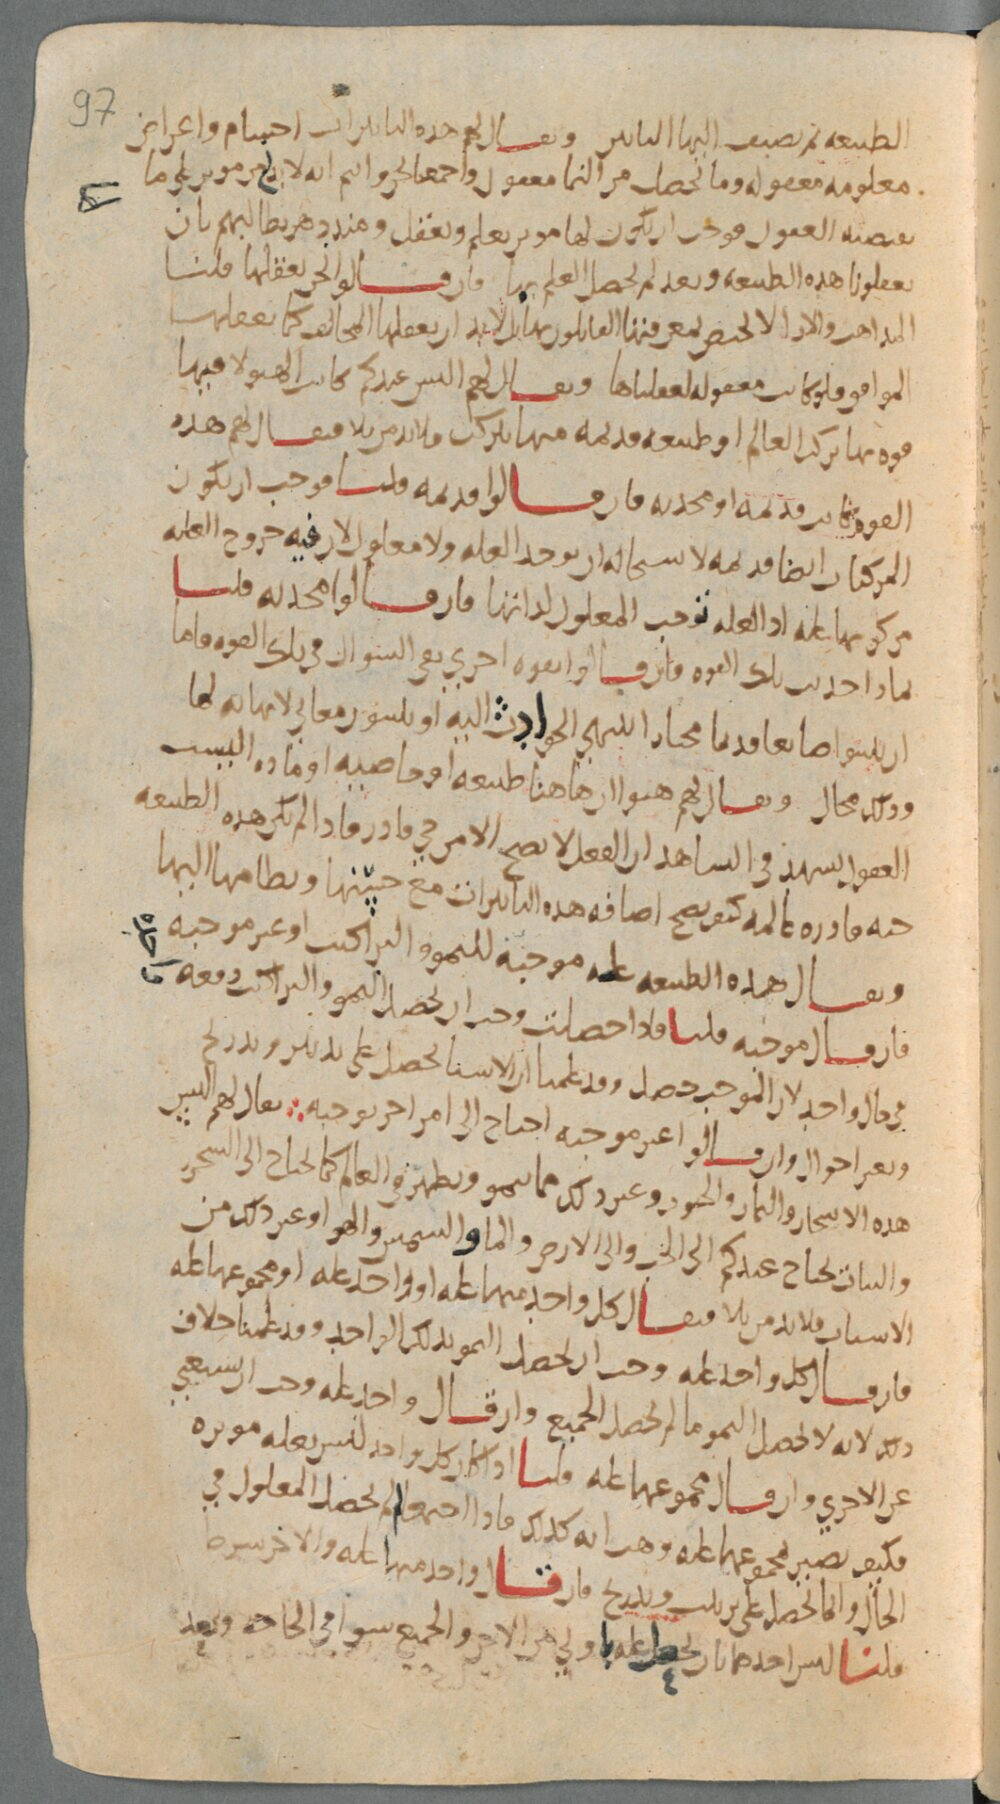 97
الطبيعة ثم نضيف إليها التأثير ويقال لهم هذه التأثيرات أجسام وأعراض
معلومة معقولة وما يحصل من النما معقول وأجمعنا نحن وأنتم أنه لا بد من موثر على ما
يقتضيه العقول فوجب أن يكون لها موثر يعلم ويعقل ونحن نطالبهم بأن
يعقلونا هذه الطبيعة وبعد لم يحصل العلم بها فإن قالوا نحن نعقلها قلنا
المذاهب والآراء لا يختص بمعرفتها القايلون بها بل لا بد أن يعقلها المخالف كما يعقلها
الموافق فلو كانت معقولة لعقلناها ويقال لهم أليس عندكم كانت الهيولا فيها
قوة بها تركب العالم أو طبيعة قديمة منها تركب فلا بد من بلا فيقال لهم هذه
القوة كانت قديمة أو محدثة فإن قالوا قديمة قلنا فوجب أن يكون
المركبات أيضا قديمة لاستحالة أن توجد العلة ولا معلول لأن فيه خروج العلة
من كونها علة إذ العلة توجب المعلول لذاتها فإن قالوا محدثة قلنا
بماذا حدثت تلك القوة فإن قالوا بقوة أخرى بقي السوال في تلك القوة فإما
أن يثبتوا صانعا قديما مختارا تنتهي الحوادث إليه أو يثبتون معاني لا نهاية لها
وذلك محال ويقال لهم هبوا أن هاهنا طبيعة أو خاصية أو مادة أليست
العقول تشهد في الشاهد أن الفعل لا يصح إلا من حي قادر فإذا لم تكن هذه الطبيعة
حية قادرة عالمة كيف يصح إضافة هذه التأثيرات مع حسنها ونظامها إليها
ويقال هذه الطبيعة علة موجبة للنمو والتراكيب أو غير موجبة
فإن قال موجبة قلنا فإذا حصلت وجب أن يحصل النمو والتراكيب دفعة
في حال واحد لأن الموجب حصل وقد علمنا أن الأشيا تحصل على تدبير وتدريج
وتغير أحوال وإن قالوا غير موجبة احتاج إلى أمر آخر يوجبه يقال لهم أليس
هذه الأشجار والثمار والحبوب وغير ذلك مما ينمو ويظهر في العالم كما يحتاج إلى الشجر
والنبات يحتاج عندكم إلى الحب وإلى الأرض والما والشمس والهوا وغير ذلك من
الأسباب فلا بد من بلا فيقال كل واحد منها علة أو واحد علة أو مجموعها علة
فإن قال كل واحد علة وجب أن يحصل النمو بذلك الواحد وقد علمنا خلاف
ذلك لأنه لا يحصل النمو ما لم يحصل الجميع وإن قال واحد علة وجب أن يستغني
عن الأخرى وإن قال مجموعها علة قلنا إذا كان كل واحد ليس بعلة موثرة
فكيف تصير مجموعها علة وهب أنه كذلك فإذا اجتمعوا لم لم يحصل المعلول في
الحال وإنما يحصل على ترتيب وتدريج فإن قال واحد منها علة والآخر شرط
قلنا ليس أحدهما بأن يحصل علة بأولى من الآخر والجميع سوا في الحاجة وبعد